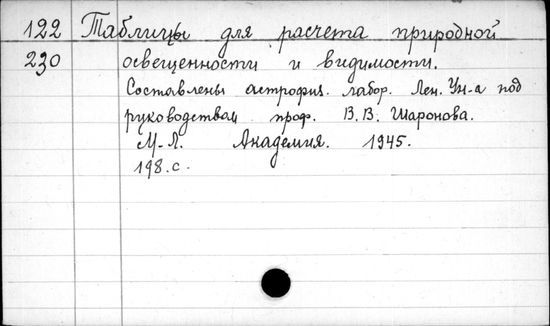 122 Таблицы для расчета природной
230 освещенности и видимости.
Составлены астрофиз. лабор. Лен. Ун-а под
руководством проф. В. В. Шаронова.
М-Л. Академия. 1945.
198.с.